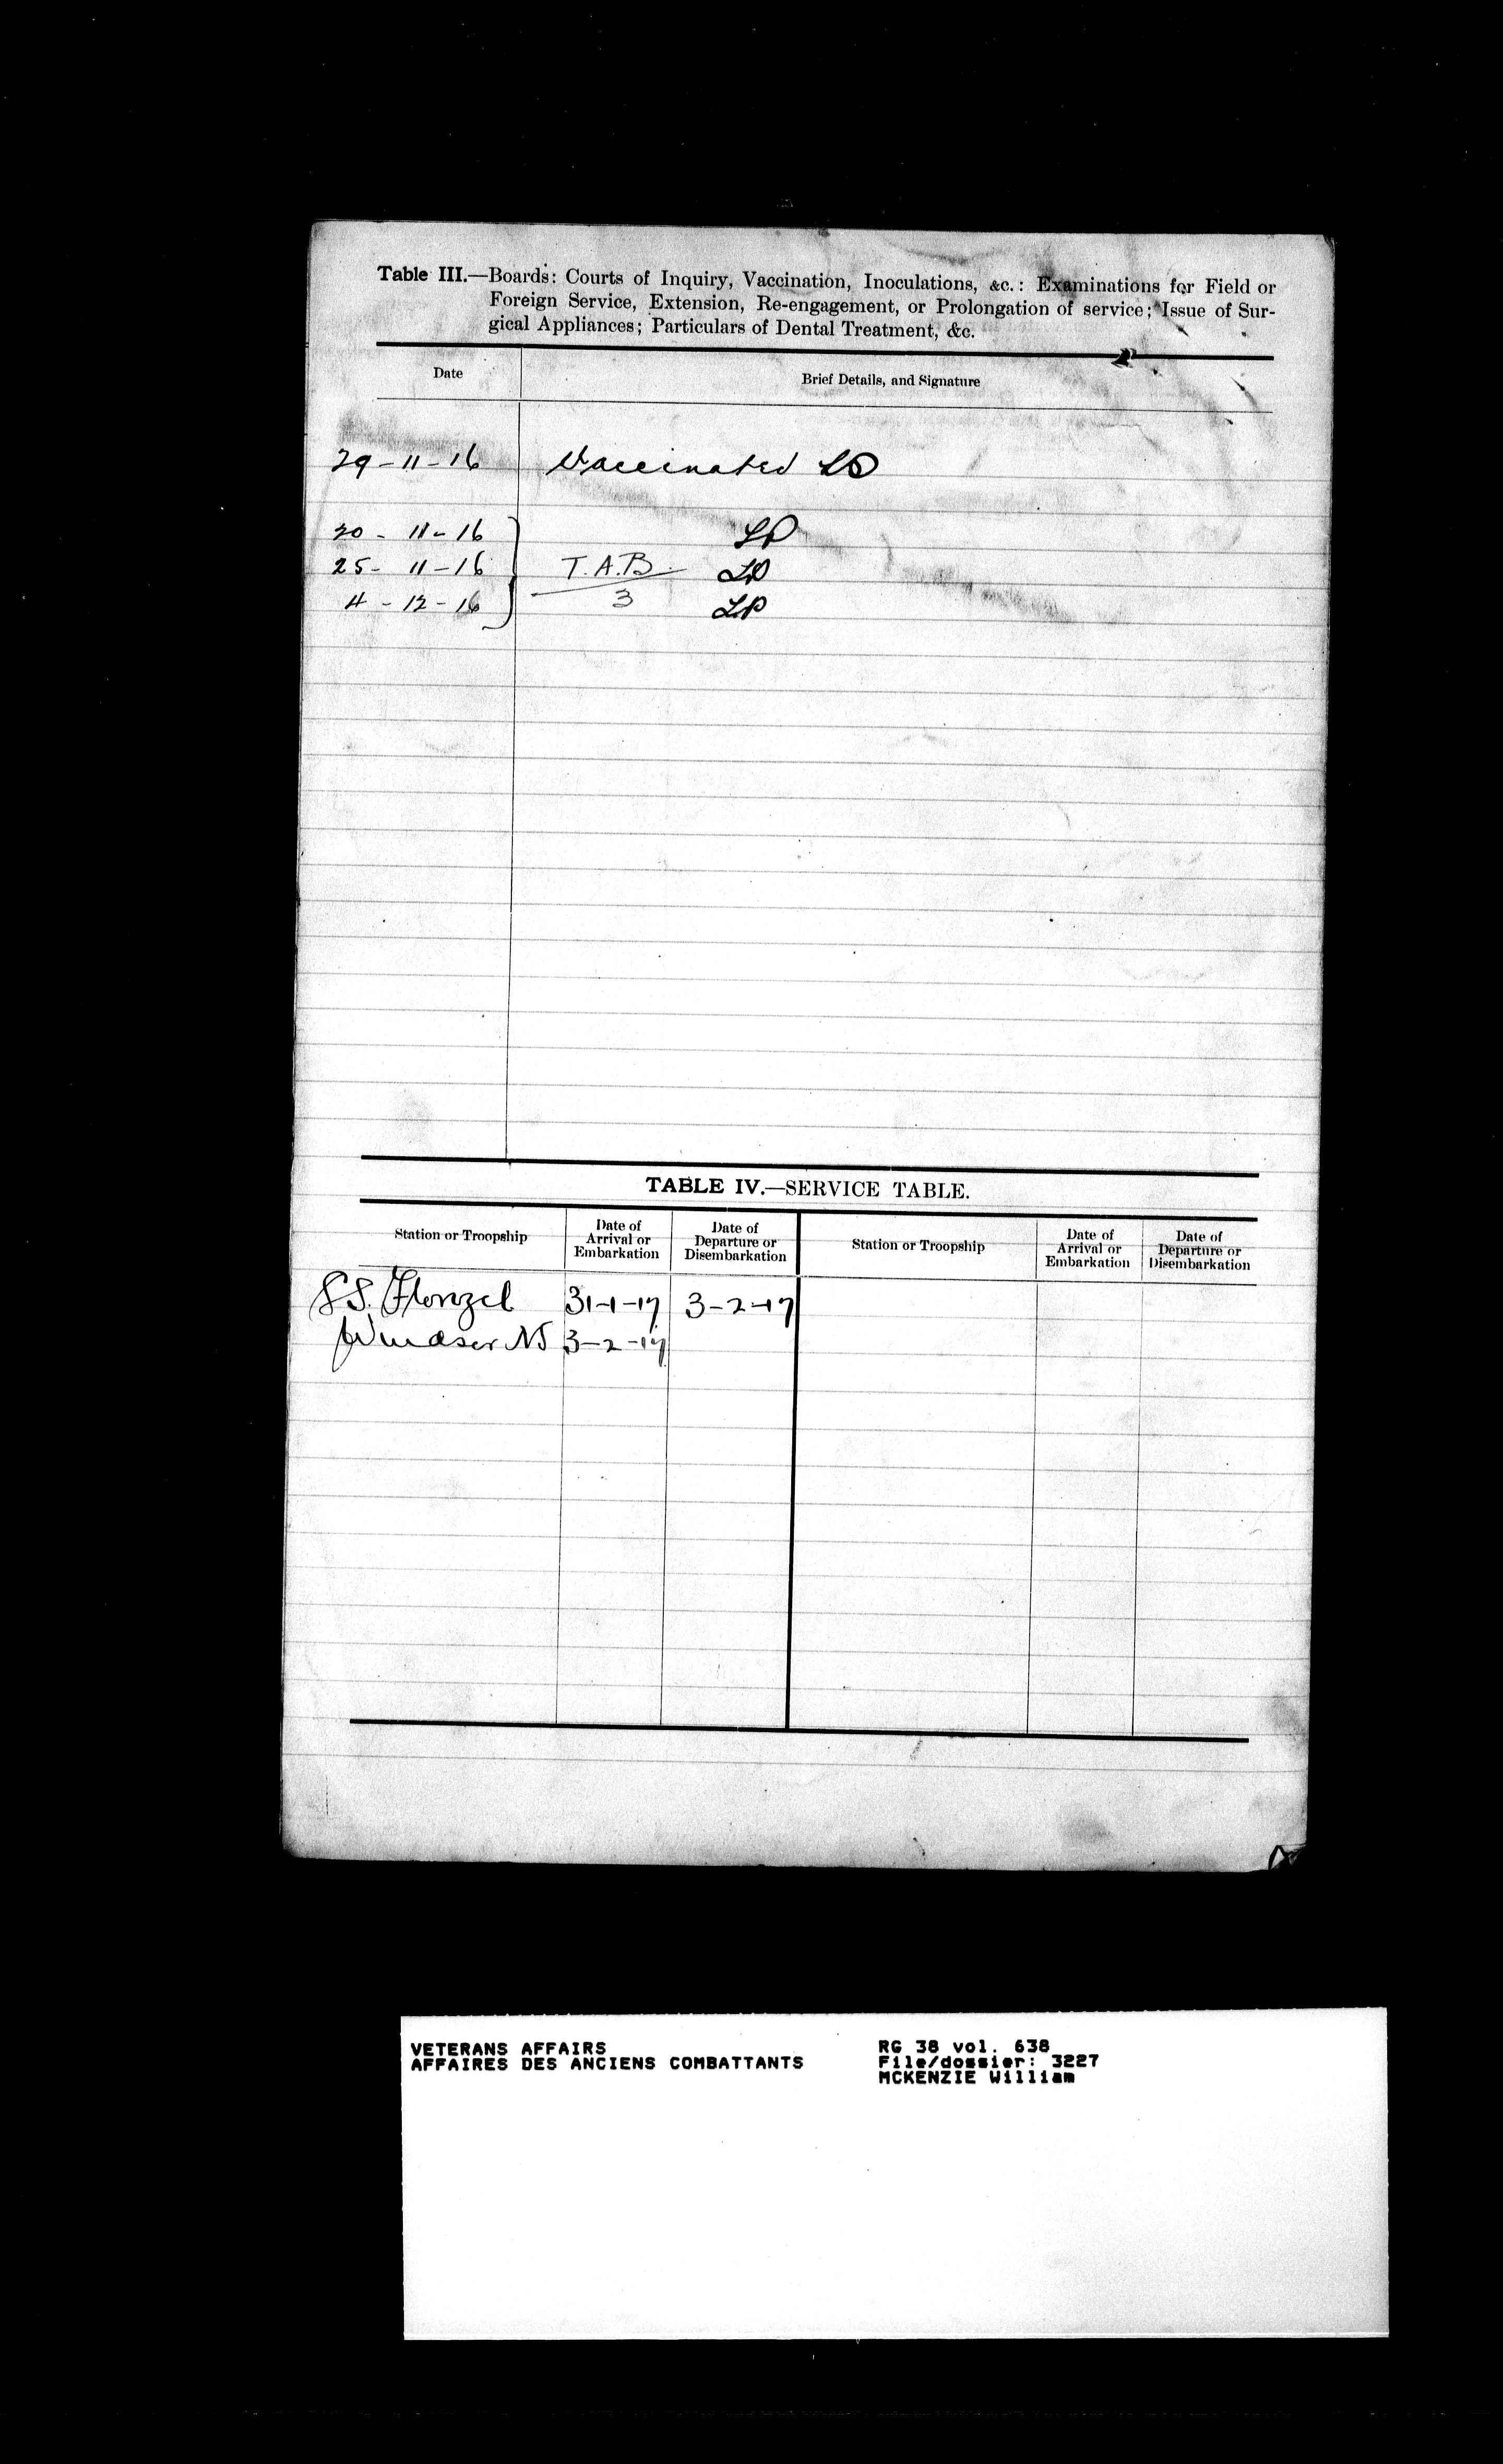 Table III.—Boards: Courts of Inquiry, Vaccination, Inoculations, &c.: Examinations for Field or
Foreign Service, Extension, Re-engagement, or Prolongation of service; Issue of Sur-
gical Appliances; Particulars of Dental Treatment, &c.
Date
Brief Details, and Signature
29-11-16 Vaccinated LP
20-11-16 LP
25-11-16 T.A.B. LP
4-12-16 3 LP
TABLE IV.—SERVICE TABLE.
Station or Troopship
Date of
Arrival or
Embarkation
Date of
Departure or
Disembarkation
Station or Troopship
Date of
Arrival or
Embarkation
Date of
Departure or
Disembarkation
S.S. Florizel 31-1-17 3-2-17
Windsor NS 3-2-17
VETERANS AFFAIRS
AFFAIRES DES ANCIENS COMBATTANTS
RG 38 vol. 638
File/dossier: 3227
MCKENZIE William